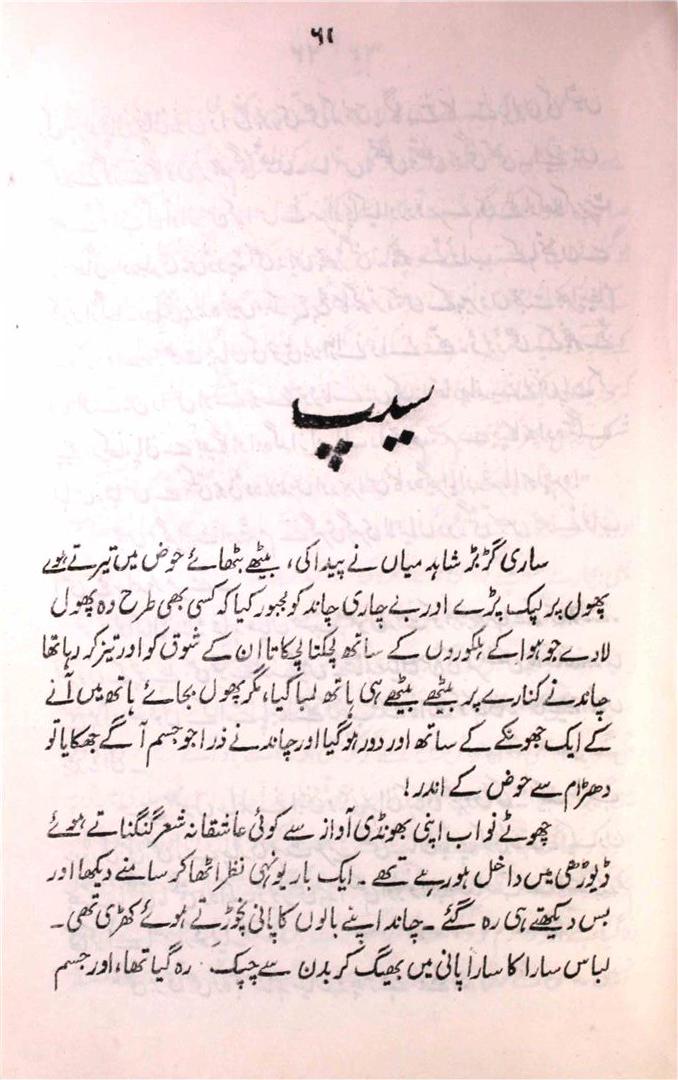 ۶۱
سیپ
ساری گڑبڑ شاہد میاں نے پیدا کی، بیٹھے بٹھائے حوض میں تیرتے ہوئے
پھول پر لپک پڑے اور بے چاری چاند کو مجبور کیا کہ کسی بھی طرح وہ پھول
لا دے جو ہوا کے ہلکوروں کے ساتھ لچکتا لچکاتا ان کے شوق کو اور تیز کر رہا تھا
چاند نے کنارے پر بیٹھے بیٹھے ہی ہاتھ لمبا کیا، مگر پھول بجائے ہاتھ میں آنے
کے ایک جھونکے کے ساتھ اور دور ہو گیا اور چاند نے ذرا جو جسم آگے جھکایا تو
دھڑام سے حوض کے اندر!
چھوٹے نواب اپنی بھونڈی آواز سے کوئی عاشقانہ شعر گنگناتے ہوئے
ڈیوڑھی میں داخل ہو رہے تھے۔ ایک بار یونہی نظر اٹھا کر سامنے دیکھا اور
بس دیکھتے ہی رہ گئے۔ چاند اپنے بالوں کا پانی نچوڑتے ہوئے کھڑی تھی۔
لباس سارا کا سارا پانی میں بھیگ کر بدن سے چپک رہ گیا تھا، اور جسم